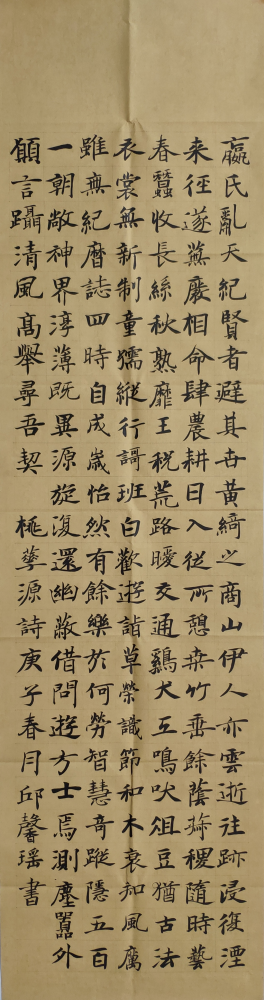 嬴氏亂天紀賢者避其世黃綺之商山伊人亦雲逝往跡浸復湮
来徑遂蕪廢相命肆農耕日入從所憩桑竹垂餘蔭菽稷隨時藝
春蠶收長絲秋熟靡王稅荒路曖交通鷄犬互鳴吠俎豆猶古法
衣裳無新制童孺縱行謌班白歡遊詣草榮識節和木衰知風厲
雖無紀曆誌四時自成歲怡然有餘樂於何勞智慧奇蹤隱五百
一朝敞神界淳薄既異源旋復還幽蔽借問遊方士焉測塵囂外
願言躡清風高舉尋吾契 桃華源詩庚子春月邱馨瑶書